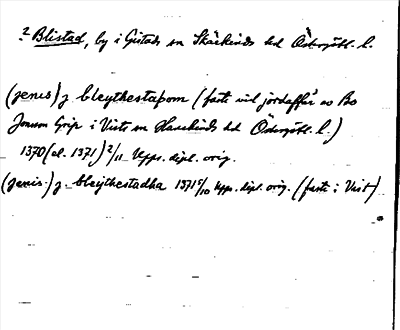 ? Blistad, by i Gistads sn Skärkinds hd Östergötl. l.
(jenis) j bleythestaþom (faste vid jordaffär av Bo
Jonsson Grip i Vists sn Hanekinds hd Östergötl. l.)
1370 (el. 1371) 2/11 Upps. dipl. orig.
(jenis) j bleythestadha 1371 5/10 Upps. dipl. orig. (faste i Vist)